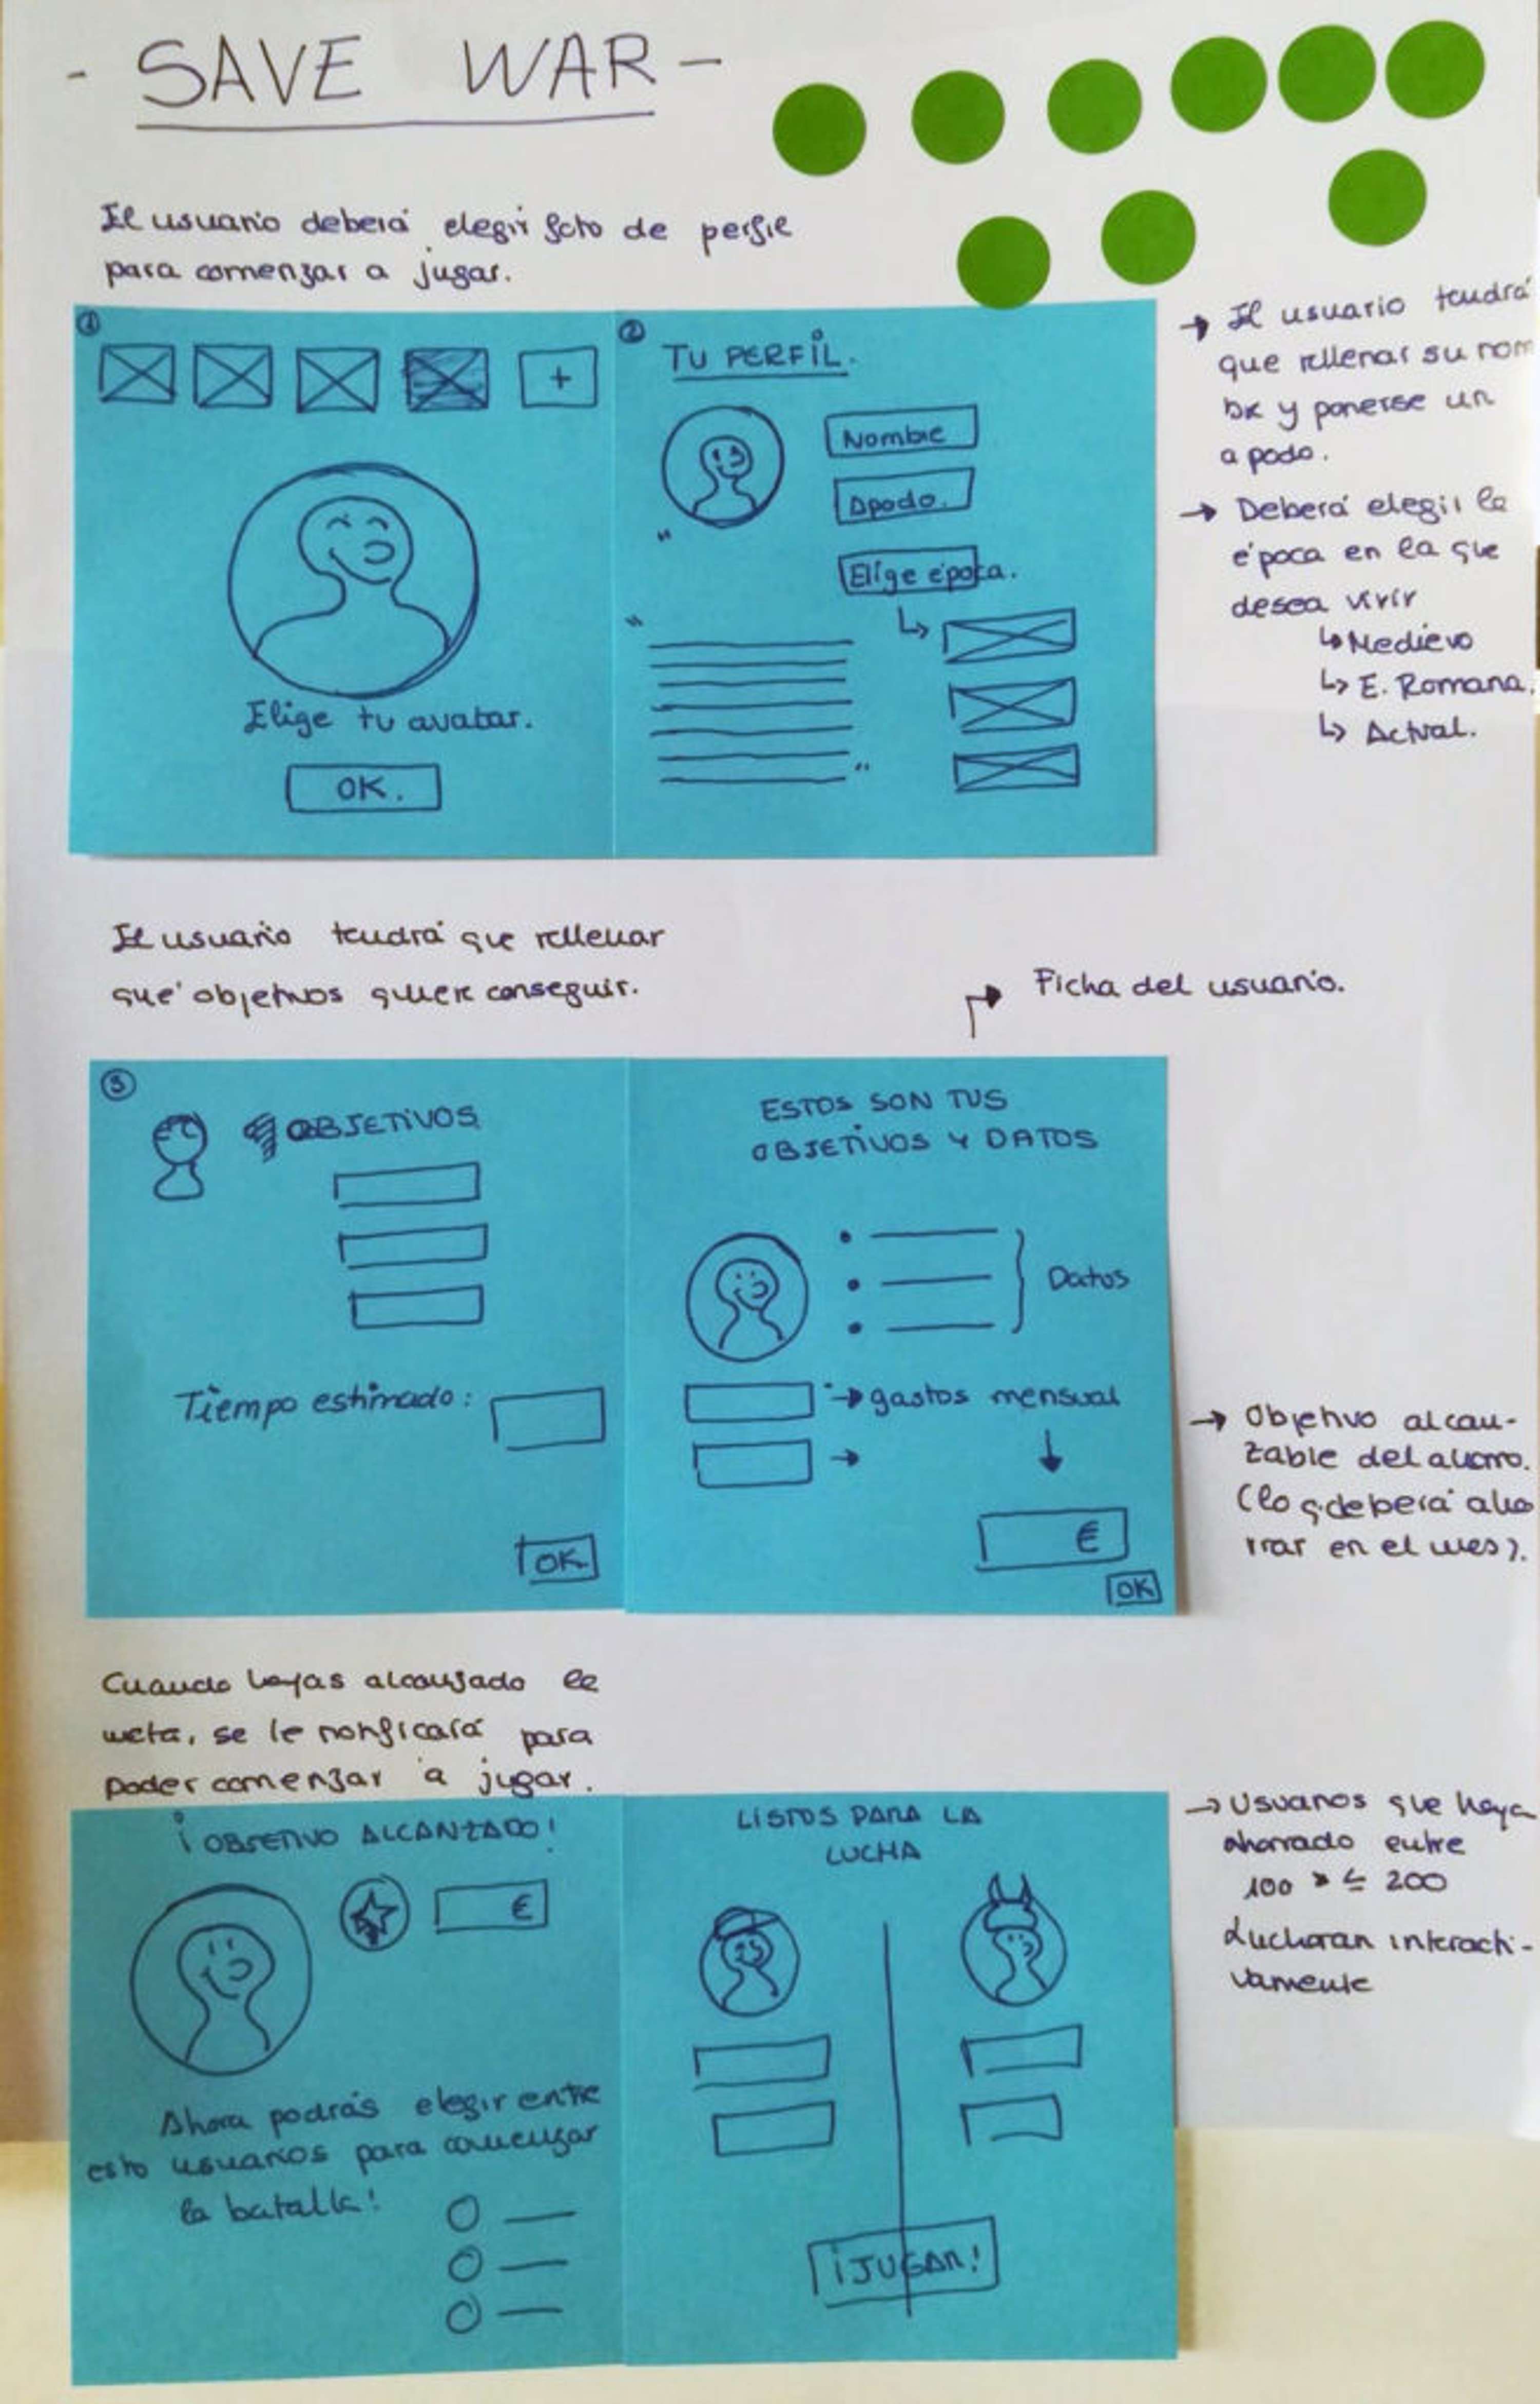 - SAVE WAR -
El usuario deberá elegir foto de perfil
para comenzar a jugar.
1
+
Elige tu avatar.
OK.
2
TU PERFIL.
Nombre
Apodo.
Elige época.
→ El usuario tendrá
que rellenar su nom
bre y ponerse un
apodo.
→ Deberá elegir la
época en la que
desea vivir
↳ Medievo
↳ E. Romana.
↳ Actual.
El usuario tendrá que rellenar
qué objetivos quiere conseguir.
Ficha del usuario.
3
OBJETIVOS
Tiempo estimado:
OK
ESTOS SON TUS
OBJETIVOS Y DATOS
Datos
→ gastos mensual
€
OK
→ Objetivo alcan-
zable del ahorro.
(lo q. deberá aho
rrar en el mes).
Cuando hayas alcanzado la
meta, se le notificará para
poder comenzar a jugar.
¡OBJETIVO ALCANZADO!
€
Ahora podrás elegir entre
esto usuarios para comenzar
la batalla!
LISTOS PARA LA
LUCHA
¡JUGAR!
→ Usuarios que haya
ahorrado entre
100 ≤ 200
Lucharan interacti-
vamente